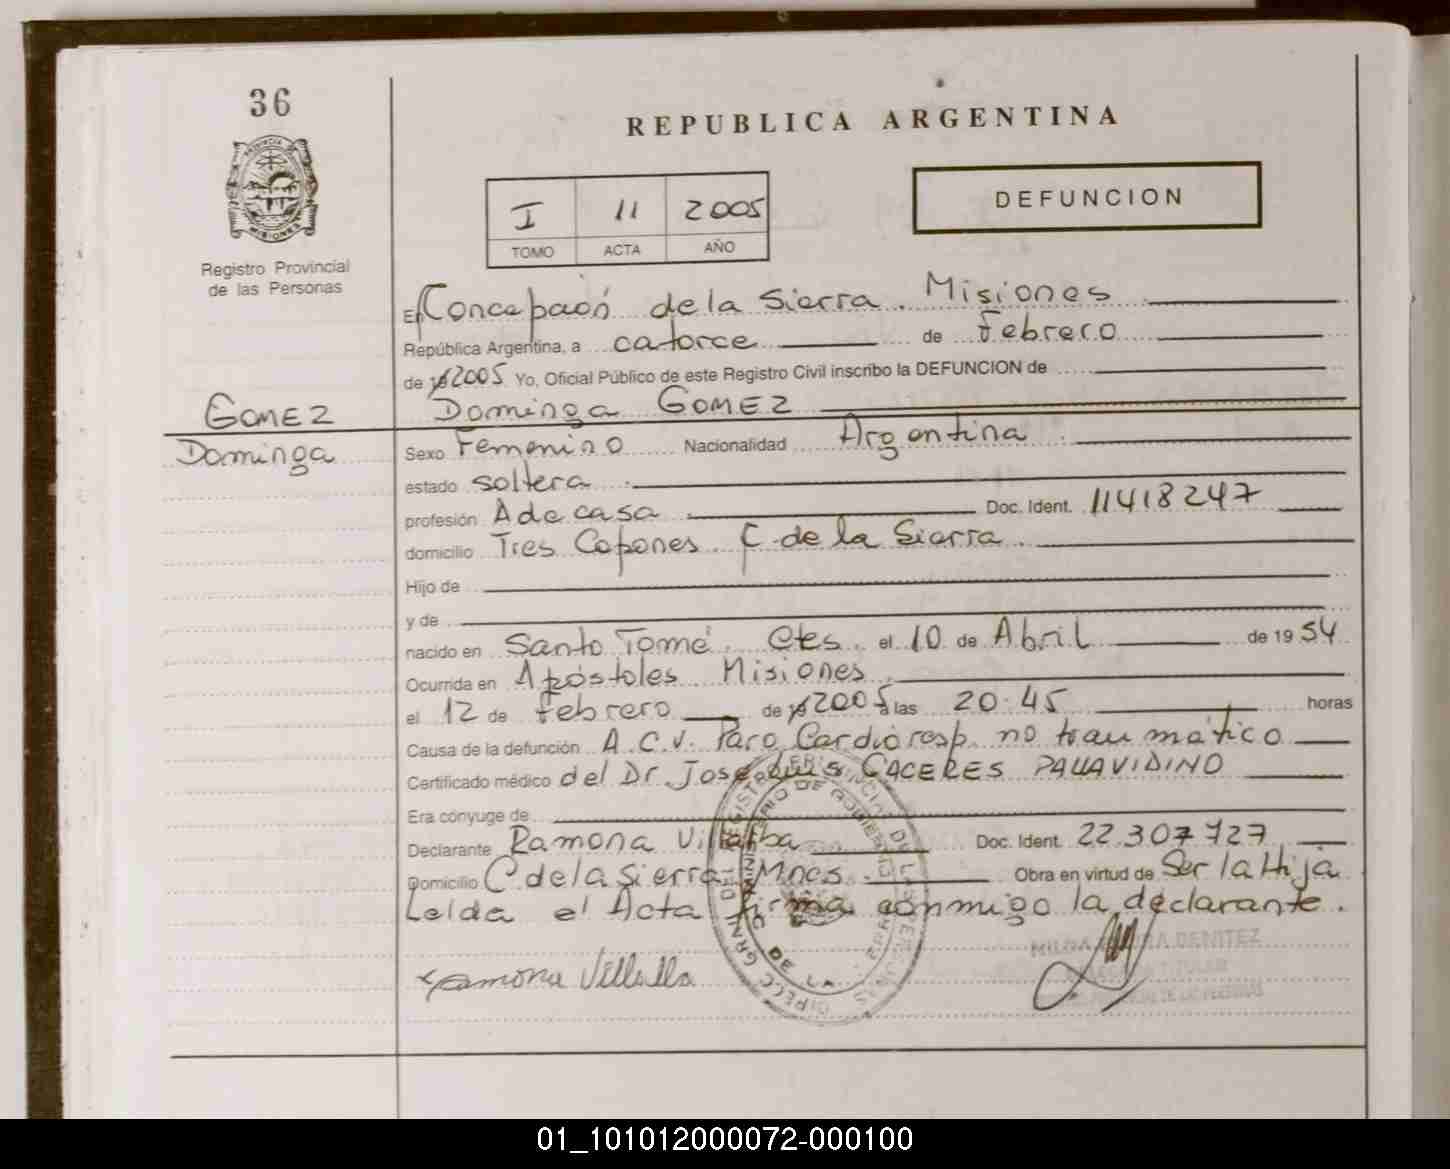 36
REPUBLICA ARGENTINA
PROVINCIA DE
MISIONES
Registro Provincial
de las Personas
I 11 2005
TOMO ACTA AÑO
DEFUNCION
En Concepción de la Sierra. Misiones
República Argentina, a catorce de Febrero
de 2005 Yo, Oficial Público de este Registro Civil inscribo la DEFUNCION de
GOMEZ
Dominga GOMEZ
Dominga
Sexo Femenino Nacionalidad Argentina
estado soltera
profesión A de casa Doc. Ident. 11418247
domicilio Tres Capones. C. de la Sierra
Hijo de
y de
nacido en Santo Tomé. Ctes. el 10 de Abril de 1954
Ocurrida en Apóstoles Misiones
el 12 de febrero de 2005 a las 20.45 horas
Causa de la defunción A.C.V. Paro Cardioresp. no traumático
Certificado médico del Dr. José Luis CACERES PALLAVIDINO
Era cónyuge de
Declarante Ramona Villalba Doc. Ident. 22.307727
Domicilio C. de la Sierra Mnes. Obra en virtud de Ser la Hija
Leida el Acta firma conmigo la declarante.
Ramona Villalba
BENITEZ
01_101012000072-000100